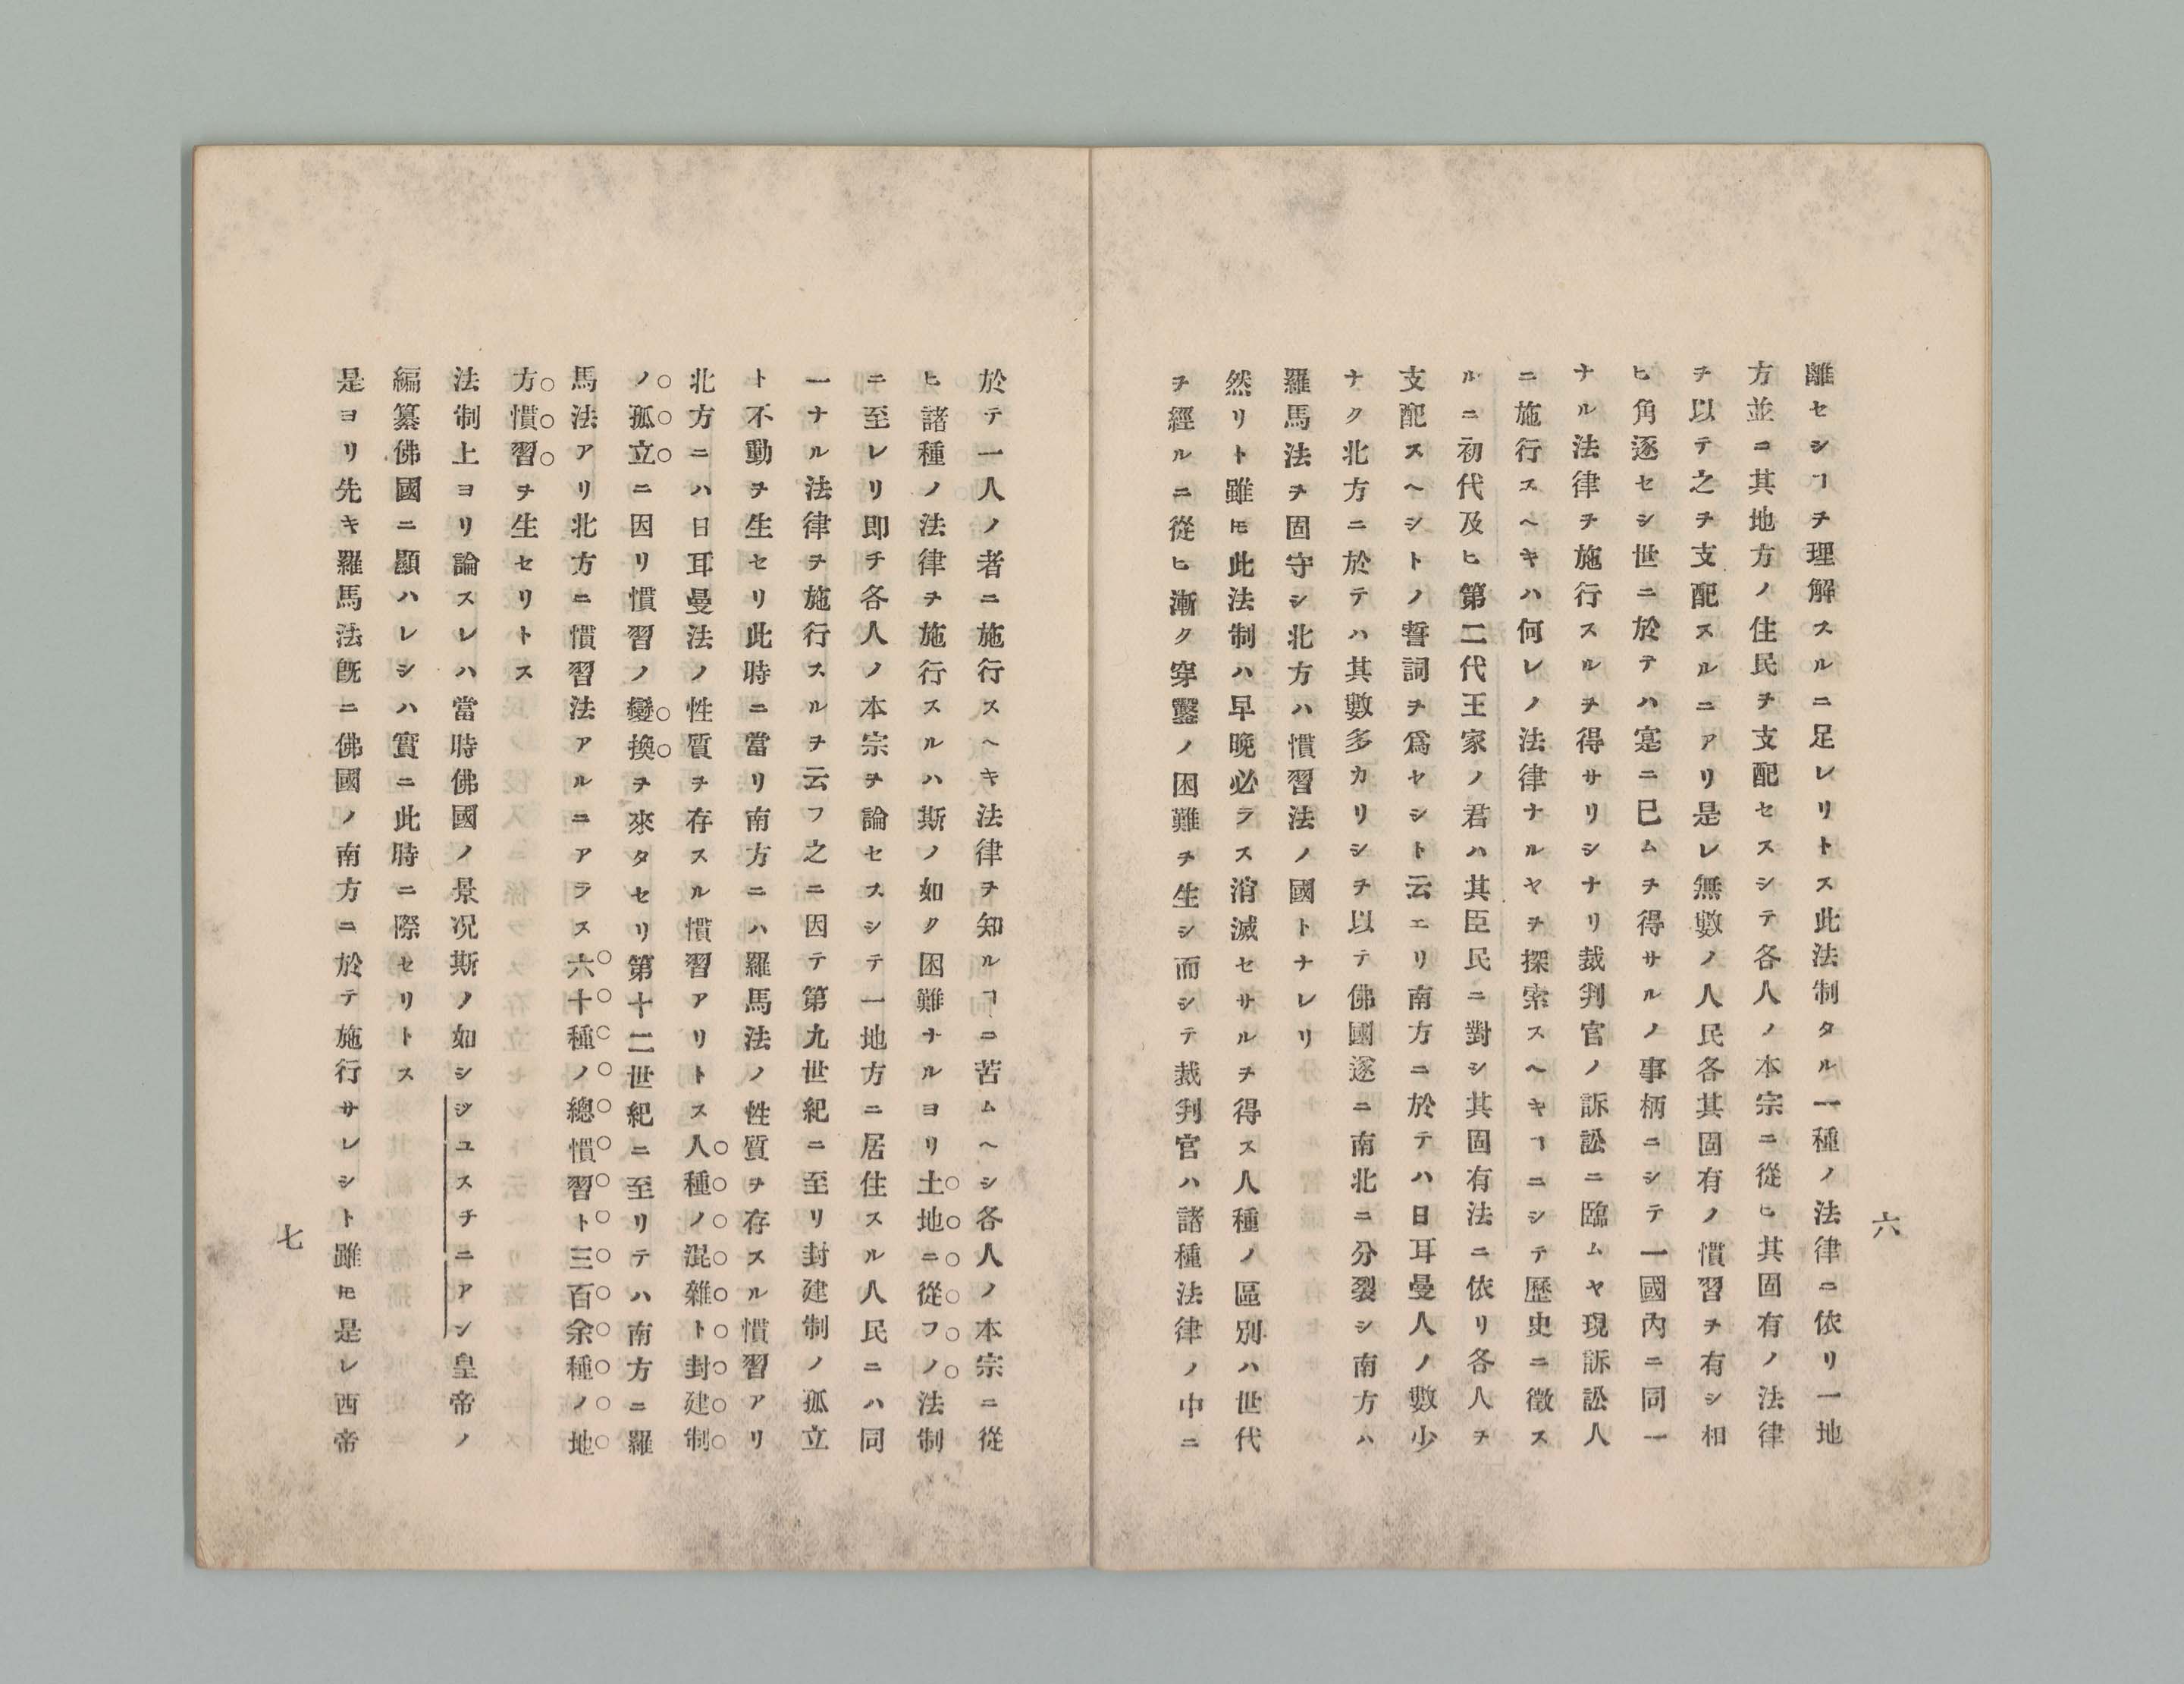 離セシヿヲ理解スルニ足レリトス此法制タル一種ノ法律ニ依リ一地
方並ニ其地方ノ住民ヲ支配セスシテ各人ノ本宗ニ從ヒ其固有ノ法律
ヲ以テ之ヲ支配スルニアリ是レ無數ノ人民各其固有ノ慣習ヲ有シ相
ヒ角逐セシ世ニ於テハ寔ニ已ムヲ得サルノ事柄ニシテ一國內ニ同一
ナル法律ヲ施行スルヲ得サリシナリ裁判官ノ訴訟ニ臨ムヤ現訴訟人
ニ施行スヘキハ何レノ法律ナルヤヲ探索スヘキヿニシテ歷史ニ徵ス
ルニ初代及ヒ第二代王家ノ君ハ其臣民ニ對シ其固有法ニ依リ各人ヲ
支配スヘシトノ誓詞ヲ爲ヤシト云エリ南方ニ於テハ日耳曼人ノ數少
ナク北方ニ於テハ其數多カリシヲ以テ佛國遂ニ南北ニ分裂シ南方ハ
羅馬法ヲ固守シ北方ハ慣習法ノ國トナレリ
然リト雖𪜈此法制ハ早晚必ラス消滅セサルヲ得ス人種ノ區別ハ世代
ヲ經ルニ從ヒ漸ク穿鑿ノ困難ヲ生シ而シテ裁判官ハ諸種法律ノ中ニ
六
於テ一人ノ者ニ施行スヘキ法律ヲ知ルヿニ苦ムヘシ各人ノ本宗ニ從
ヒ諸種ノ法律ヲ施行スルハ斯ノ如ク困難ナルヨリ土地ニ從フノ法制
ニ至レリ即チ各人ノ本宗ヲ論セスシテ一地方ニ居住スル人民ニハ同
一ナル法律ヲ施行スルヲ云フ之ニ因テ第九世紀ニ至リ封建制ノ孤立
ト不動ヲ生セリ此時ニ當リ南方ニハ羅馬法ノ性質ヲ存スル慣習アリ
北方ニハ日耳曼法ノ性質ヲ存スル慣習アリトス人種ノ混雜ト封建制
ノ孤立ニ因リ慣習ノ變換ヲ來タセリ第十二世紀ニ至リテハ南方ニ羅
馬法アリ北方ニ慣習法アルニアラス六十種ノ總慣習ト三百余種ノ地
方慣習ヲ生セリトス
法制上ヨリ論スレハ當時佛國ノ景況斯ノ如シジュスチニアン皇帝ノ
編纂佛國ニ顯ハレシハ實ニ此時ニ際セリトス
是ヨリ先キ羅馬法旣ニ佛國ノ南方ニ於テ施行サレシト雖𪜈是レ西帝
七